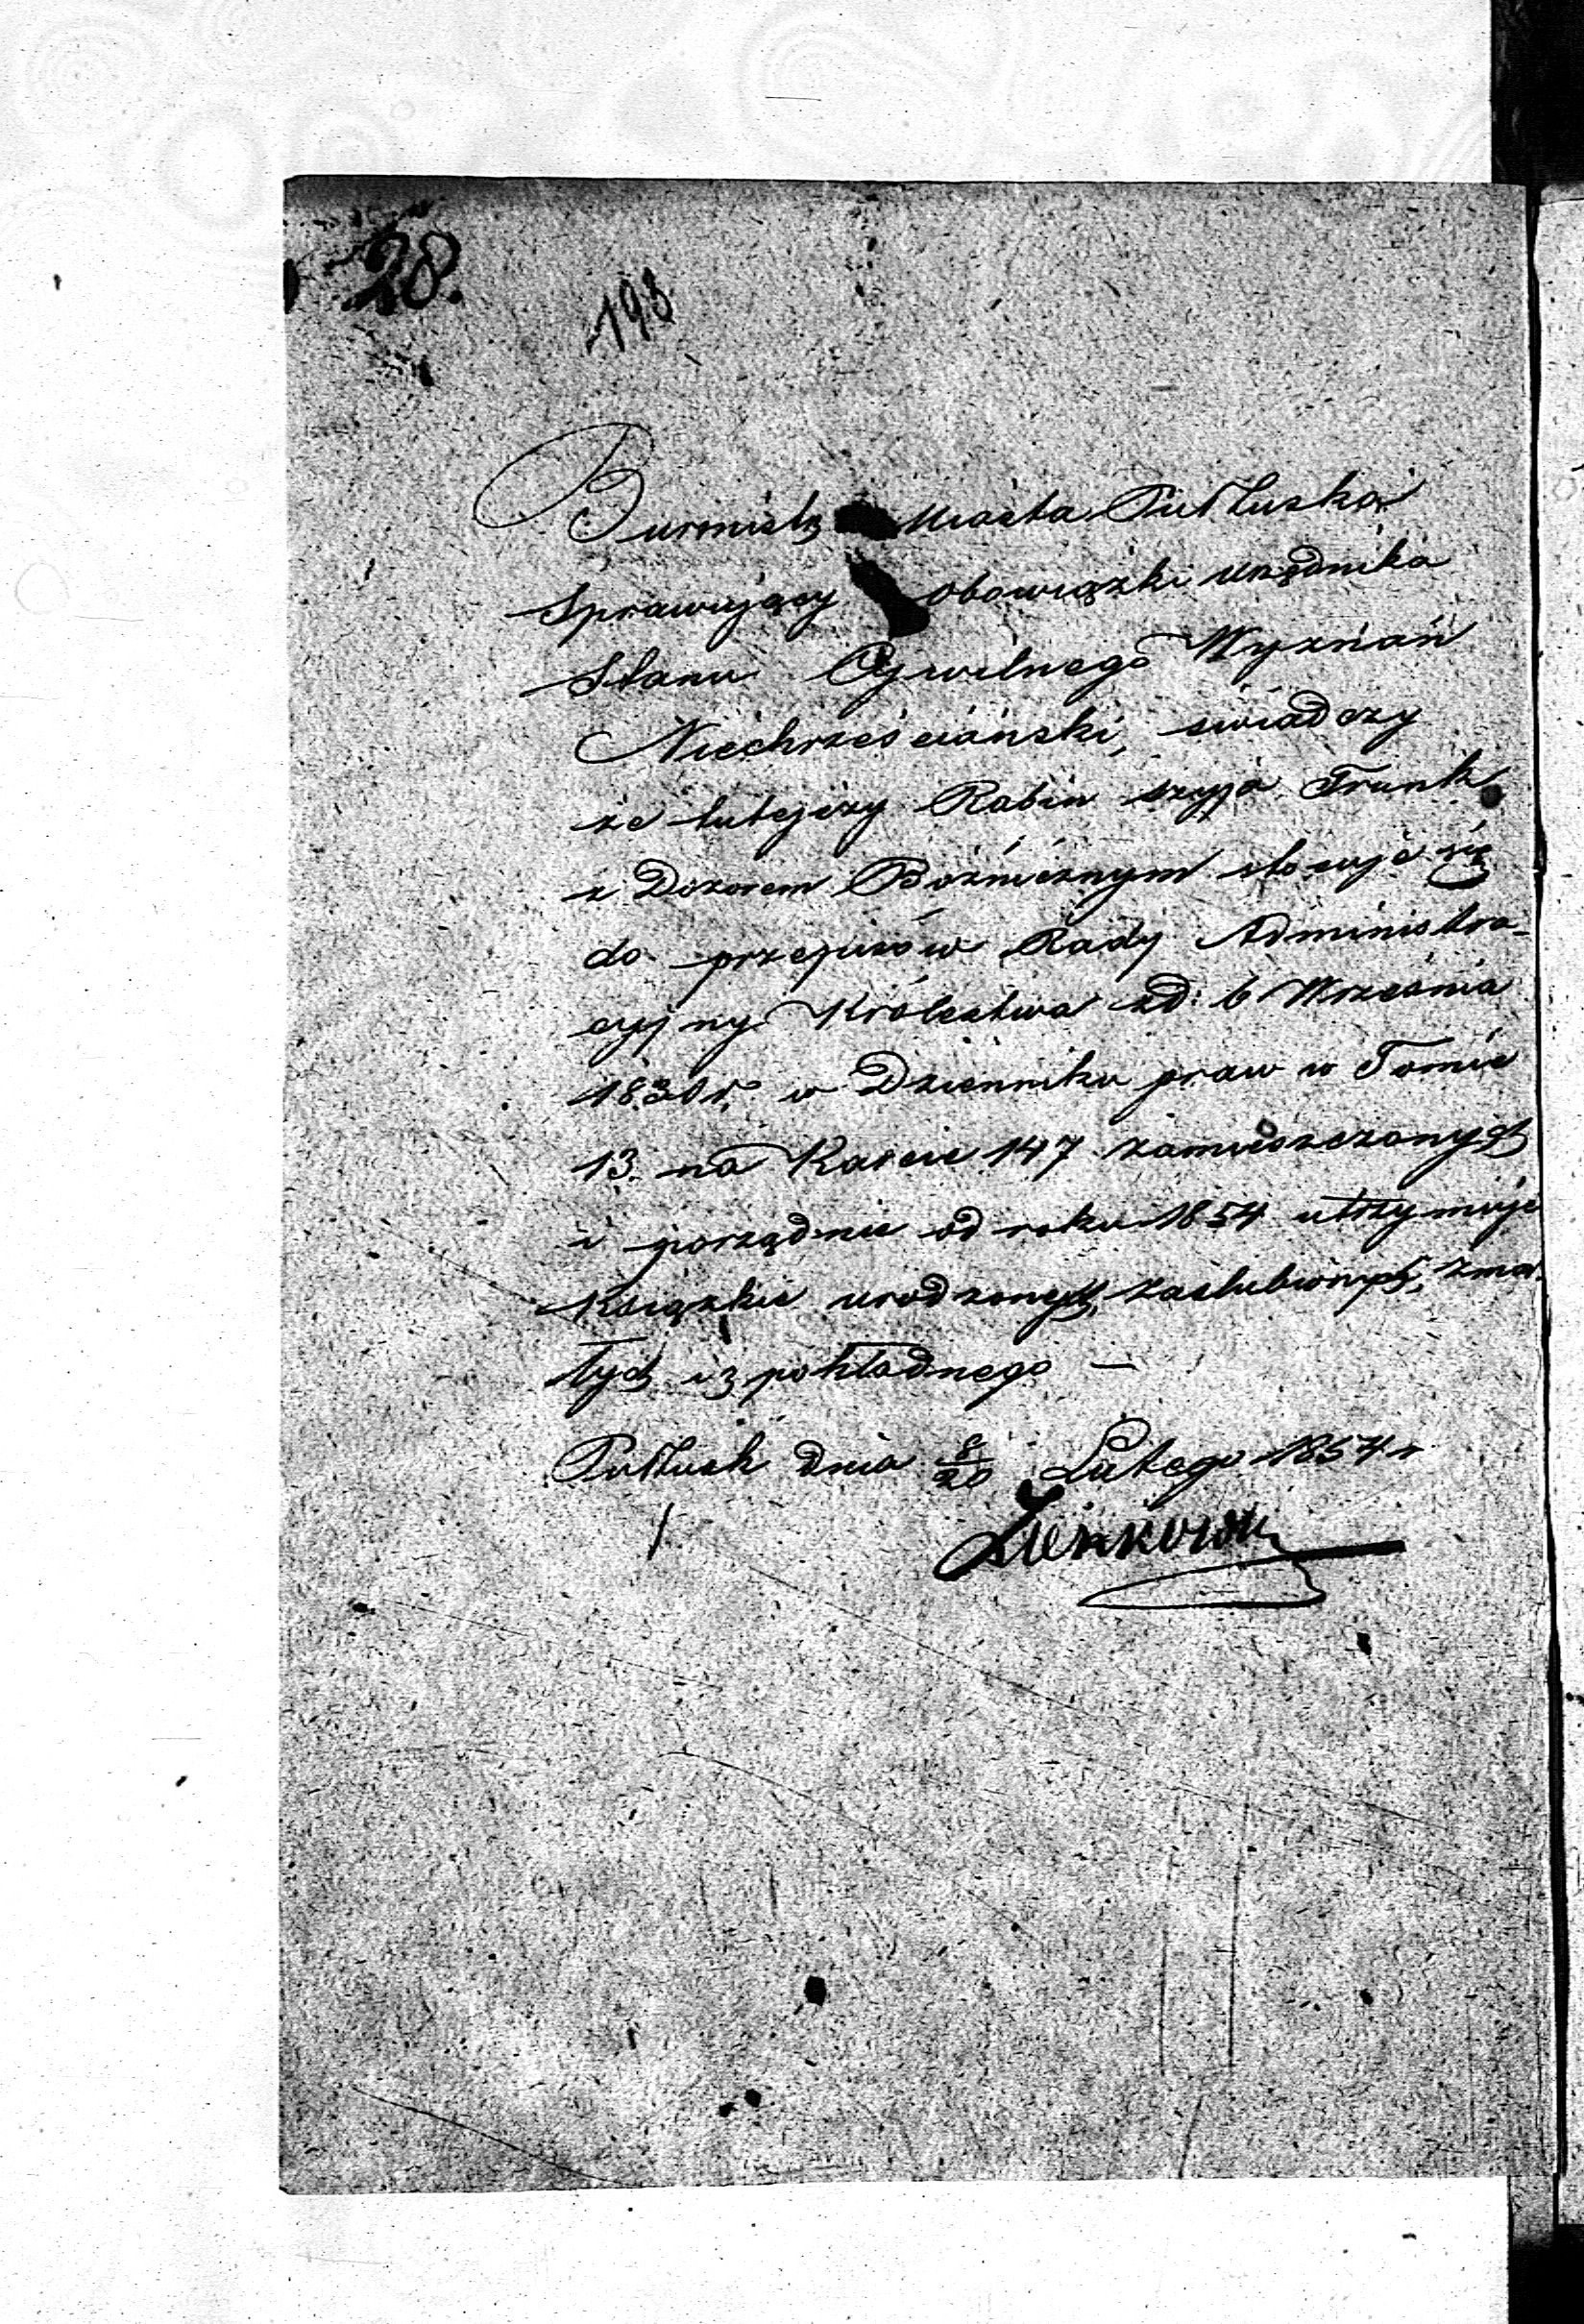 28.
193
Burmistrz Miasta Pułtuska
Sprawujący obowiązki Urzędnika
Stanu Cywilnego Wyznań
Niechrześciański, świadczy
że tutejszy Rabin Szyja Trunk
z Dozorem Bóżnicznym stosuje się
do przepisów Rady Administra-
cyjny Królestwa zd: 6 Września
1830 r. w Dzienniku praw w Tomie
13. na Karcie 147 zamieszczonych
i porządnie od roku 1854 utrzymuje
Książkie urodzonych, zaślubionych, zmar-
łych i z pokładnego —
Pułtusk dnia 8/20 Lutego 1854 r